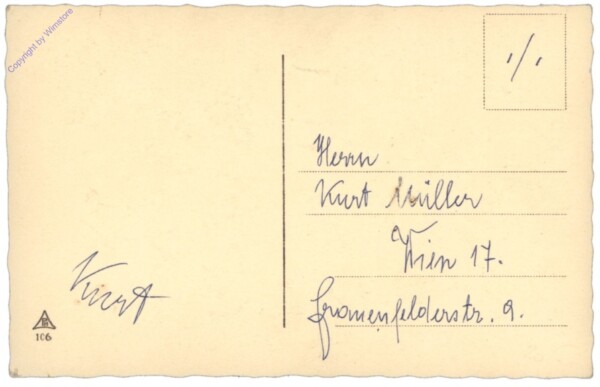 Copyright by Wimstore
Kurt
106
Herrn
Kurt Müller
Wien 17.
Frauenfelderstr. 9.